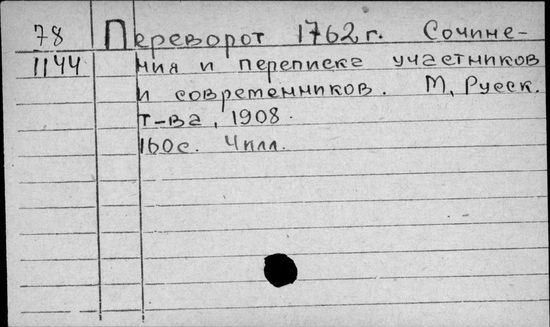 78 Переворот 1762 г. Сочине-
1144 ния и переписка участников
и современников. М, Русск.
т-ва, 1908.
160с. 4илл.